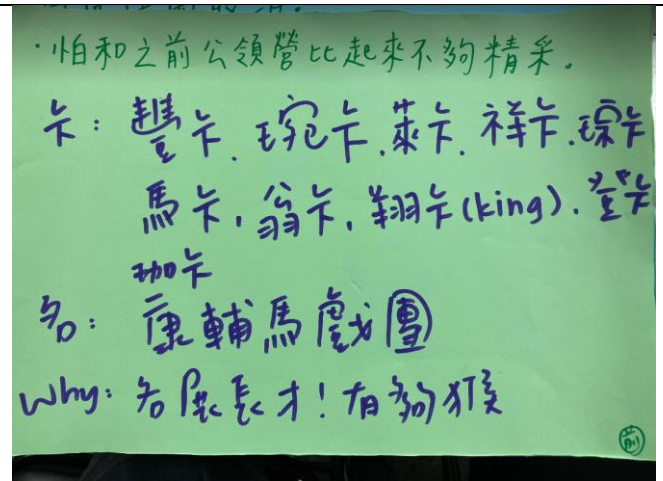 ·怕和之前公領營比起來不夠精采。
卡：豐卡、琬卡、萊卡、祥卡、琮卡
馬卡、翁卡、翔卡(king)、萱卡
珈卡
名：康輔馬戲團
Why: 各展長才！有夠猴
前